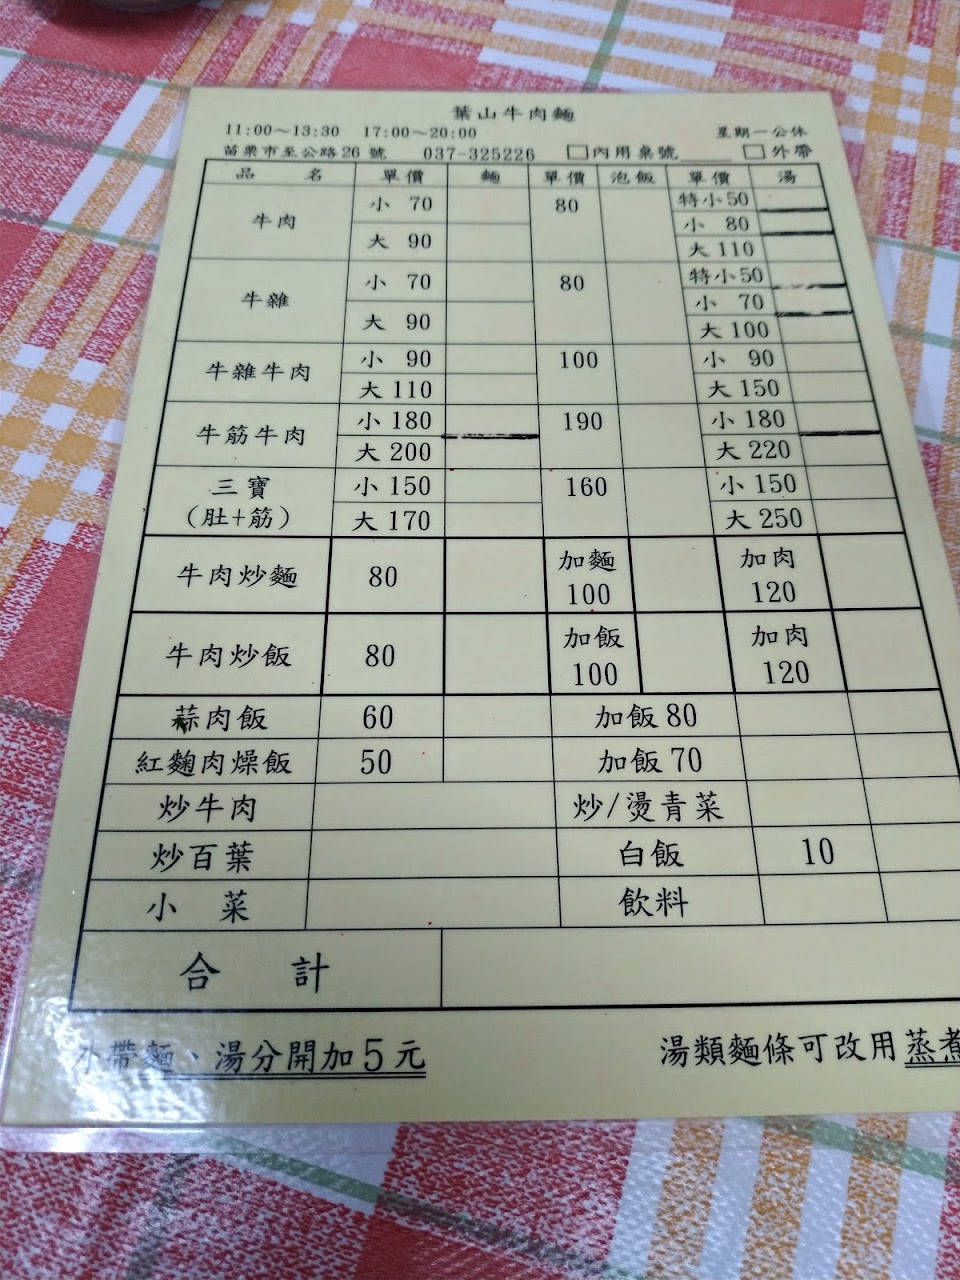 葉山牛肉麵
11:00～13:30 17:00～20:00 星期一公休
苗栗市至公路26號 037-325226 □內用桌號____ □外帶
品 名 單價 麵 單價 泡飯 單價 湯
牛肉 小 70 80 特小50
小 80
大 90 大 110
牛雜 小 70 80 特小50
小 70
大 90 大 100
牛雜牛肉 小 90 100 小 90
大 110 大 150
牛筋牛肉 小 180 190 小 180
大 200 大 220
三寶 小 150 160 小 150
（肚+筋） 大 170 大 250
牛肉炒麵 80 加麵 加肉
100 120
牛肉炒飯 80 加飯 加肉
100 120
蒜肉飯 60 加飯80
紅麴肉燥飯 50 加飯70
炒牛肉 炒/燙青菜
炒百葉 白飯 10
小 菜 飲料
合 計
外帶麵、湯分開加5元 湯類麵條可改用蒸煮